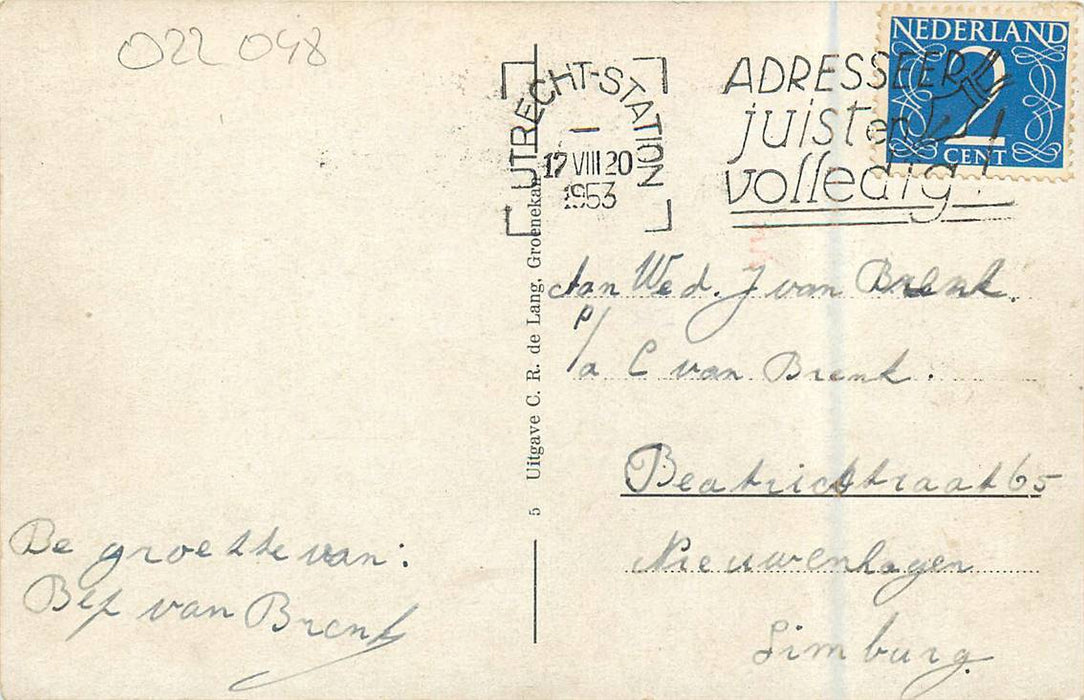 022 048
UTRECHT-STATION
17 VIII 20
1953
ADRESSEER
juist en
volledig!
NEDERLAND
2
CENT
Aan Wed. J van Brenk.
p/a C van Brenk.
Beatrixstraat 65
Nieuwenhagen
Limburg
5 Uitgave C. R. de Lang, Groenekan
De groette van:
Bep van Brenk